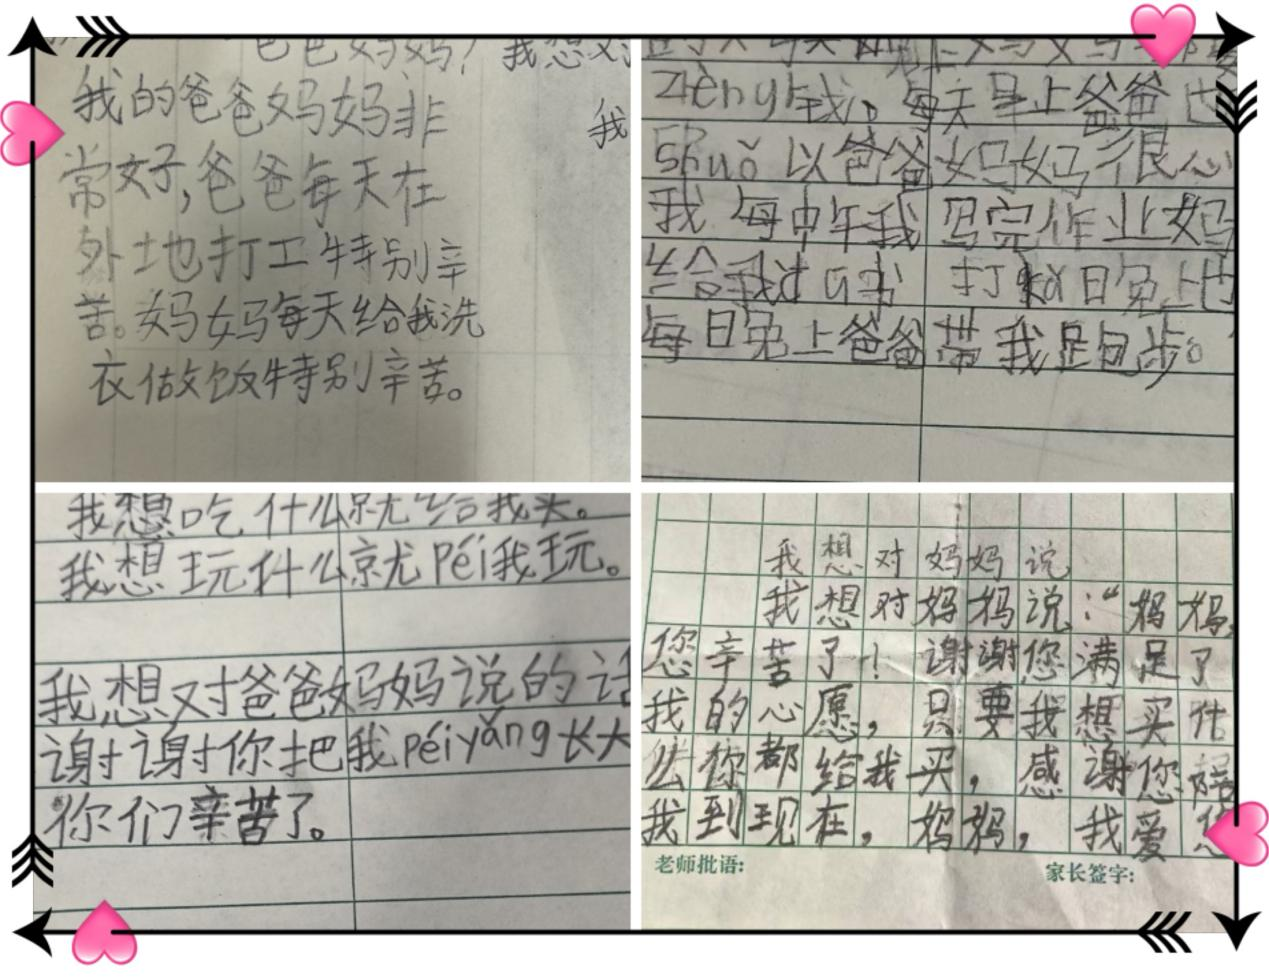 爸爸妈妈！我想对
我的爸爸妈妈非
我
常好，爸爸每天在
外地打工特别辛
苦。妈妈每天给我洗
衣做饭特别辛苦。
zhèng钱。每天早上爸爸也
shuǒ以爸爸妈妈很心
我 每中午我写完作业妈
给我d u书 打 kāi晚上地
每晚上爸爸带我跑步。
我想吃什么就给我买。
我想玩什么就Péi我玩。
我想对爸爸妈妈说的话
谢谢你把我péiyǎng长大
你们辛苦了。
我想对妈妈说
我想对妈妈说：“妈妈，
您辛苦了！谢谢您满足了
我的心愿，只要我想买什
么你都给我买，感谢您陪
我到现在，妈妈，我爱您
老师批语： 家长签字：